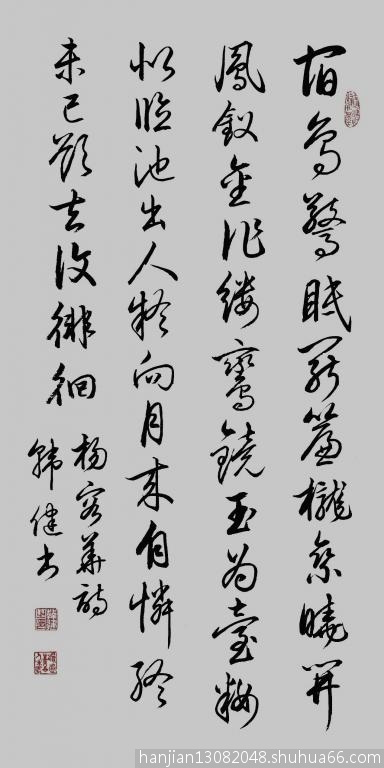 宿鳥驚眠罷簾櫳乘曉開
鳳釵金作縷鸞鏡玉為臺粧
似臨池出人疑向月來自憐終
未已欲去復徘徊
楊容華詩
韓健书
hanjian13082048.shuhua66.com